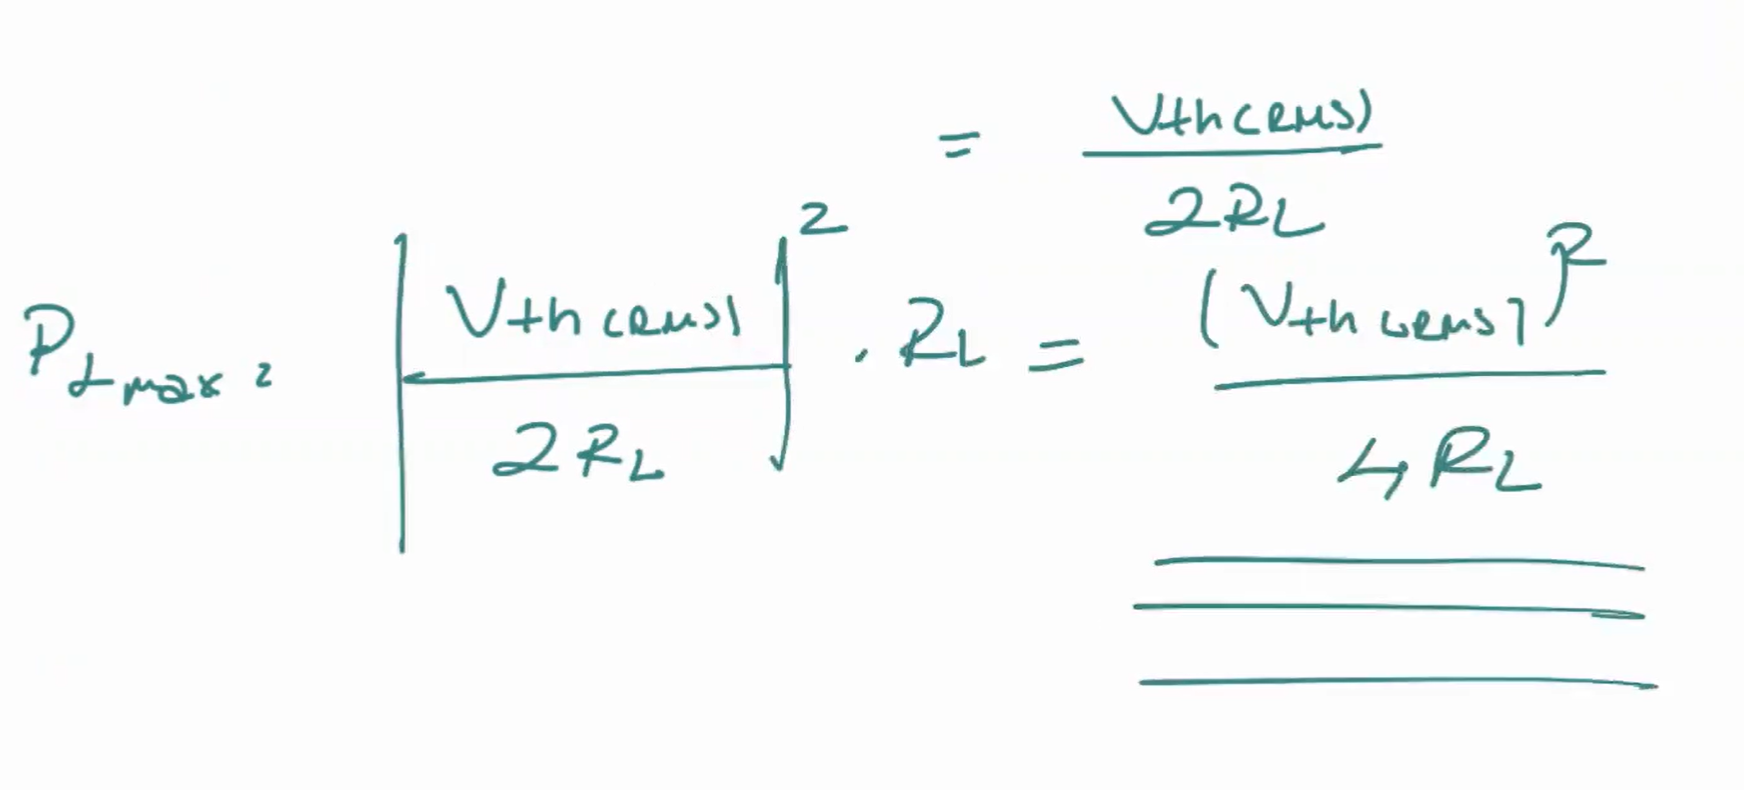 = Vth(RMS) / 2RL
PLmax = |Vth(RMS) / 2RL|² · RL = (Vth(RMS))² / 4RL